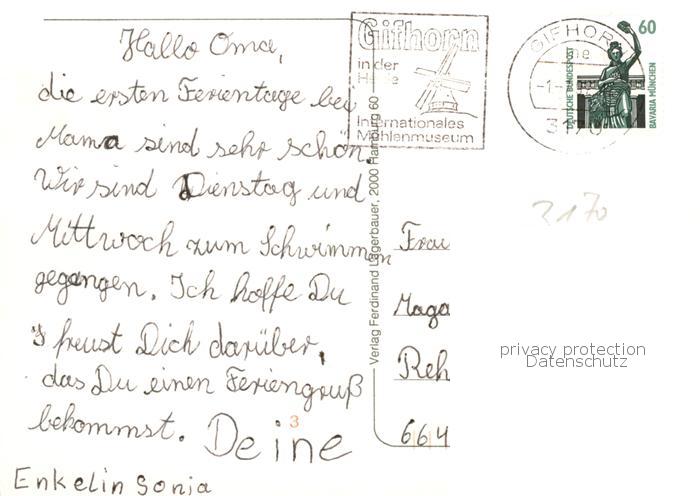 Hallo Oma,
die ersten Ferientage bei
Mama sind sehr schön.
Wir sind Dienstag und
Mittwoch zum Schwimmen
gegangen. Ich hoffe Du
freust Dich darüber,
das Du einen Feriengruß
bekommst. Deine
Enkelin Sonja
3
Verlag Ferdinand Lagerbauer, 2000 Hamburg 60
Gifhorn
in der
Heide
Internationales
Mühlenmuseum
GIFHORN
-1.-
DEUTSCHE BUNDESPOST
60
BAVARIA MÜNCHEN
3170
Frau
Maga
Reh
664
privacy protection
Datenschutz